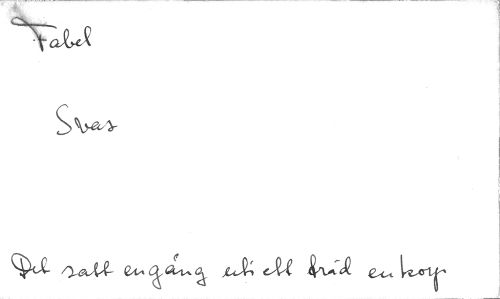 Fabel
Svar
Det satt en gång uti ett träd en korp